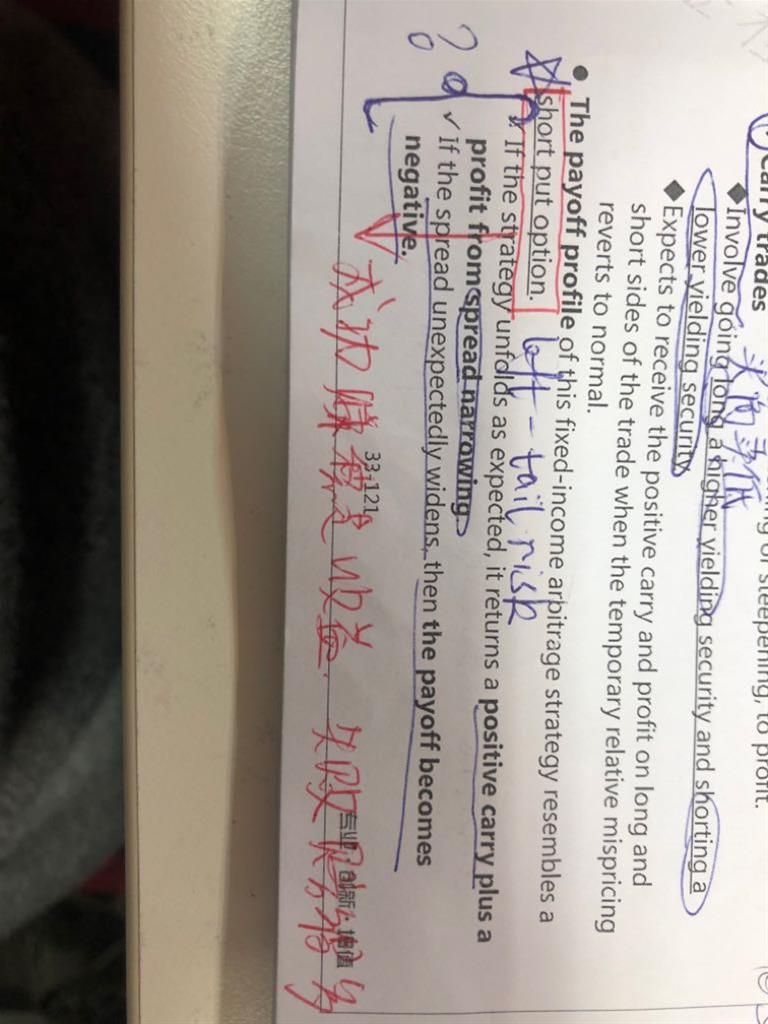 Carry trades
of steepening, to profit.
◆ Involve going long a higher yielding security and shorting a
lower yielding security
◆ Expects to receive the positive carry and profit on long and
short sides of the trade when the temporary relative mispricing
reverts to normal.
● The payoff profile of this fixed-income arbitrage strategy resembles a
short put option.
left-tail risk
✓ If the strategy unfolds as expected, it returns a positive carry plus a
profit from spread narrowing.
? ✓ if the spread unexpectedly widens, then the payoff becomes
negative.
成功 赚稳定收益. 失败
33-121
专业·创新·增值